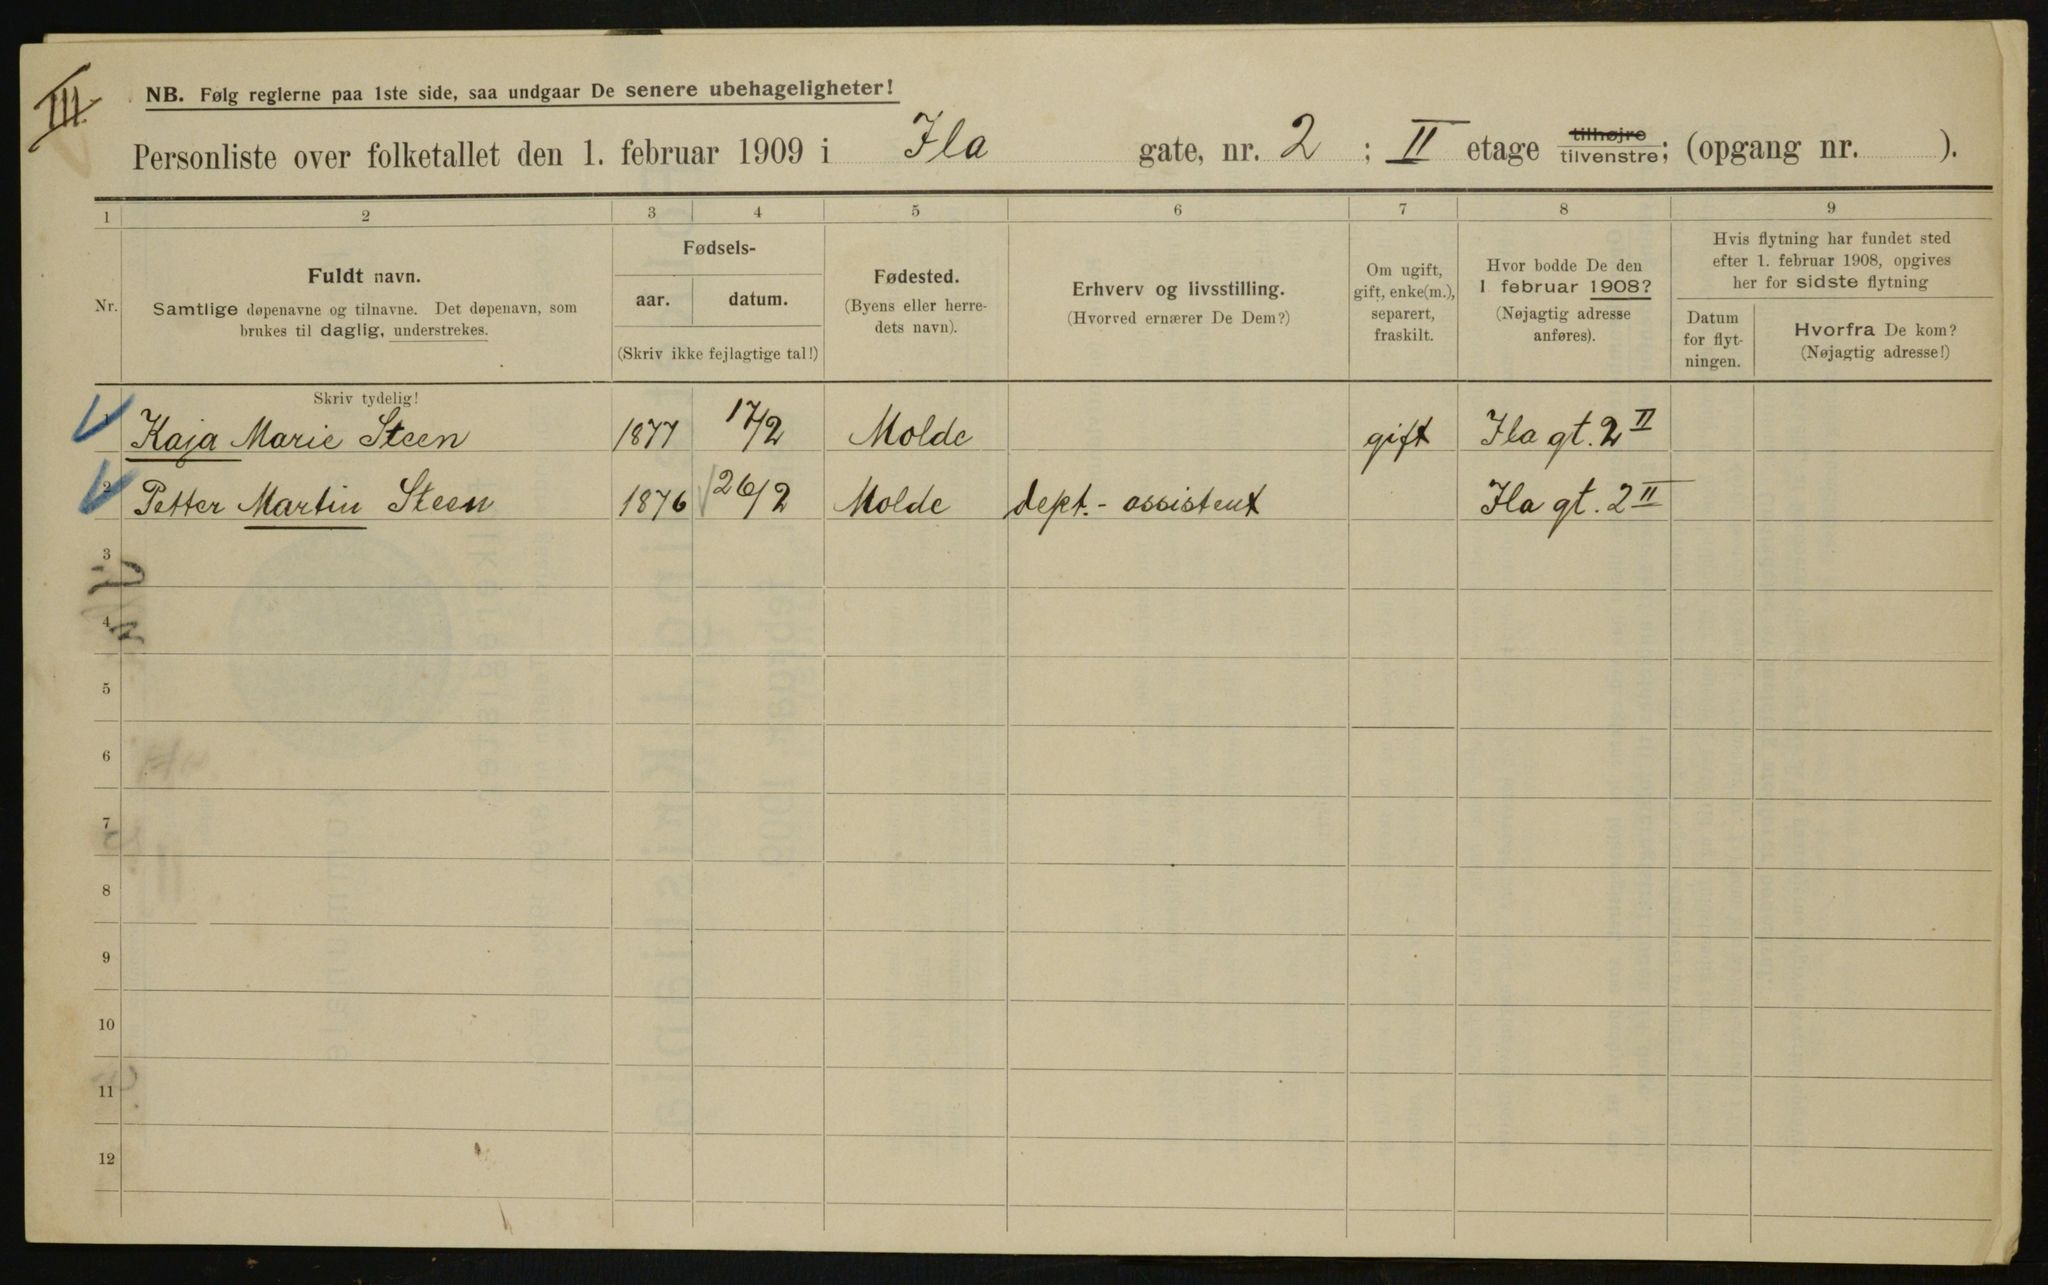 III.
NB. Følg reglerne paa 1ste side, saa undgaar De senere ubehageligheter!
Personliste over folketallet den 1. februar 1909 i Ila gate, nr. 2 ; II etage tilhøjre tilvenstre; (opgang nr. ).
1 2 3 4 5 6 7 8 9
Nr.
Fuldt navn.
Samtlige døpenavne og tilnavne. Det døpenavn, som
brukes til daglig, understrekes.
Fødsels-
aar. datum.
(Skriv ikke fejlagtige tal!)
Fødested.
(Byens eller herre-
dets navn).
Erhverv og livsstilling.
(Hvorved ernærer De Dem?)
Om ugift,
gift, enke(m.),
separert,
fraskilt.
Hvor bodde De den
1 februar 1908?
(Nøjagtig adresse
anføres).
Hvis flytning har fundet sted
efter 1. februar 1908, opgives
her for sidste flytning
Datum
for flyt-
ningen.
Hvorfra De kom?
(Nøjagtig adresse!)
Skriv tydelig!
1 Kaja Marie Steen 1877 17/2 Molde gift Ila gt. 2 II
2 Petter Martin Steen 1876 26/2 Molde dept.-assistent Ila gt. 2 II
3
4
5
6
7
8
9
10
11
12